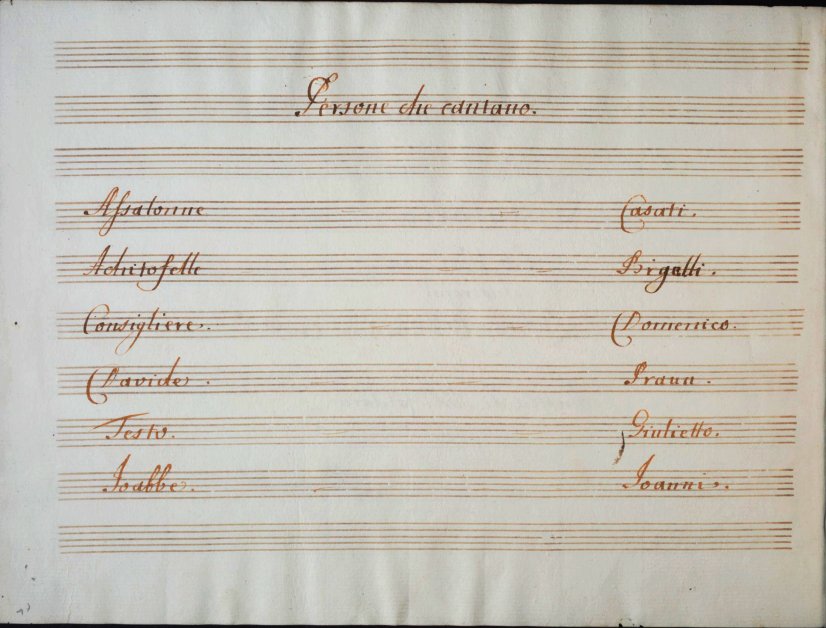 Persone che cantano.
Assalonne Casati.
Achitofelle Bigelli.
Consigliere. Domenico.
Davide. Praun.
Testo. Giulietto.
Joabbe. Joanni.